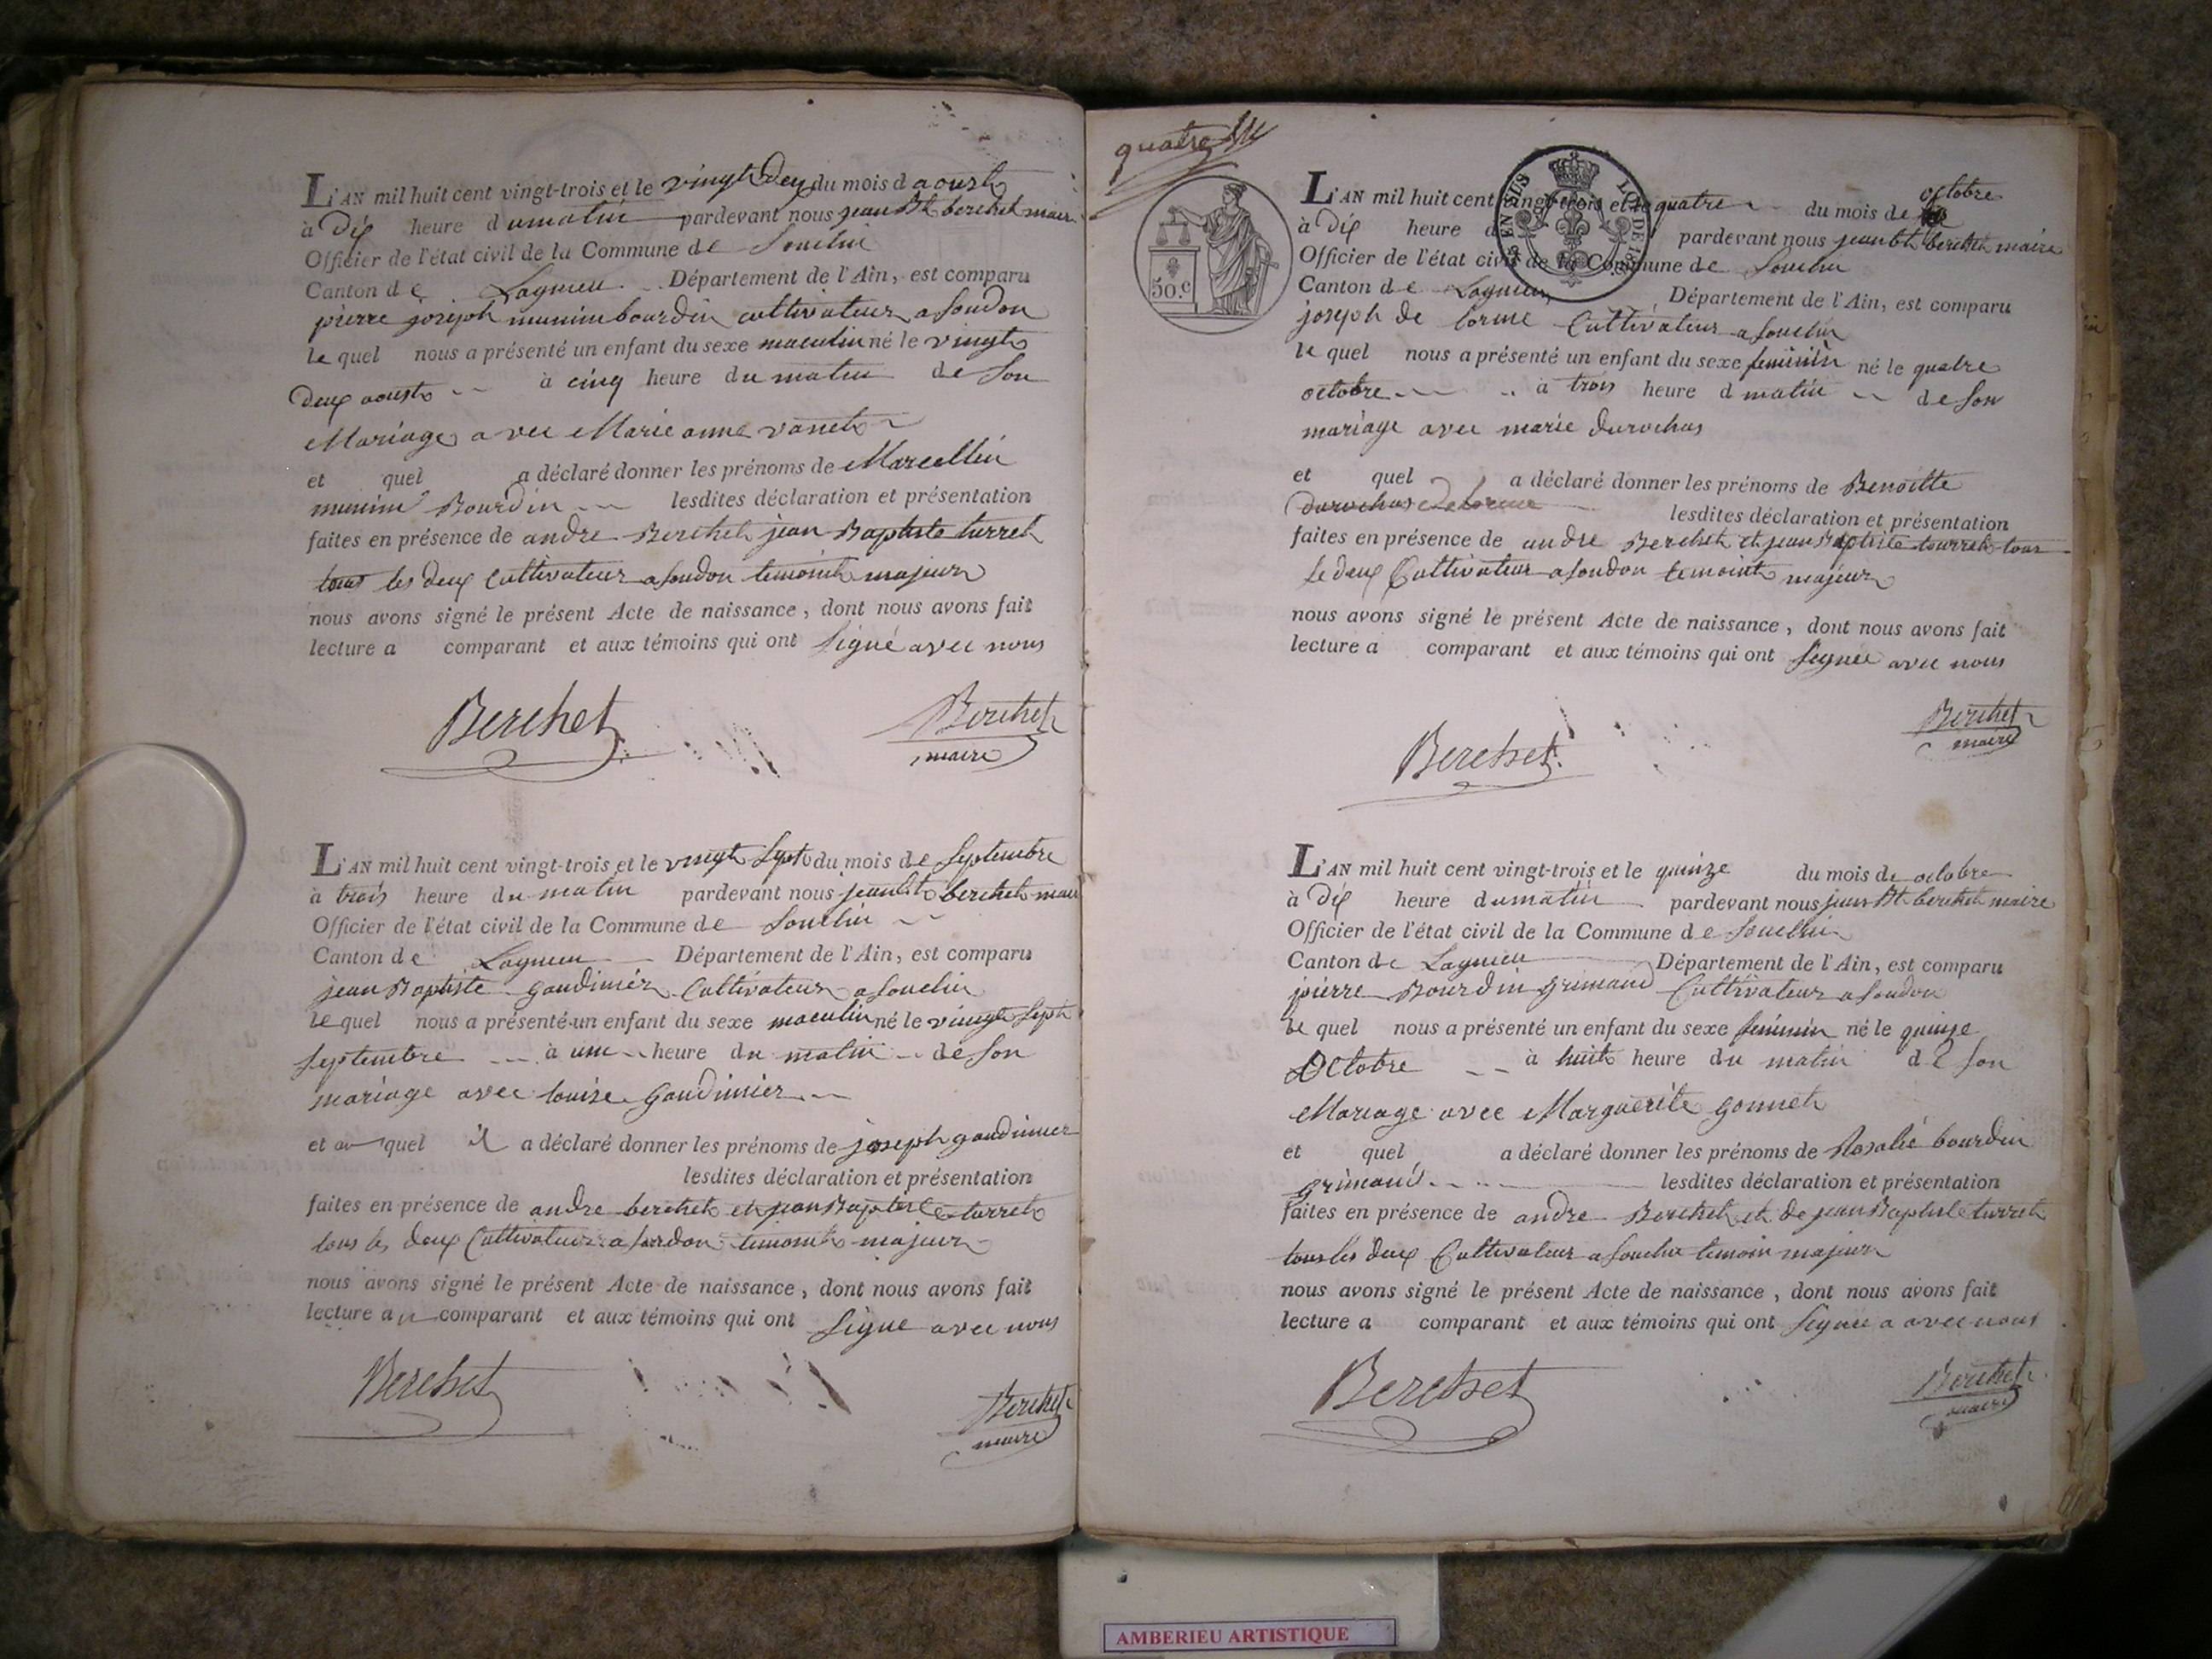 L'AN mil huit cent vingt-trois et le vingt deux du mois d aoust
à dix heure du matin pardevant nous jean Bt berchet maire
Officier de l'état civil de la Commune de Souclin
Canton de Lagnieu Département de l'Ain, est comparu
pierre joseph munim bourdin cultivateur a Soudon
le quel nous a présenté un enfant du sexe masculin né le vingt
deux aoust à cinq heure du matin de son
Mariage avec Marie anne
et quel a déclaré donner les prénoms de Marcellin
munim Bourdin lesdites déclaration et présentation
faites en présence de andre Berchet jean Baptiste turret
tous les deux Cultivateur a Soudon temoint majeur
nous avons signé le présent Acte de naissance, dont nous avons fait
lecture a comparant et aux témoins qui ont signé avec nous
Berchet
Berchet
maire
L'AN mil huit cent vingt-trois et le vingt sept du mois de septembre
à trois heure du matin pardevant nous jean Bt berchet maire
Officier de l'état civil de la Commune de Souclin
Canton de Lagnieu Département de l'Ain, est comparu
jean Baptiste gaudimier Cultivateur a Souclin
le quel nous a présenté un enfant du sexe masculin né le vingt sept
septembre à une heure du matin de son
mariage avec louise gaudimier
et au quel il a déclaré donner les prénoms de joseph gaudimier
lesdites déclaration et présentation
faites en présence de andre berchet et jean Baptiste turret
tous les deux Cultivateur a Soudon temoint majeur
nous avons signé le présent Acte de naissance, dont nous avons fait
lecture au comparant et aux témoins qui ont signe avec nous
Berchet
Berchet
maire
quatre
50.c
EN SUS
LOI DE
L'AN mil huit cent vingt-trois et le quatre du mois de octobre
à dix heure d pardevant nous jean bt berchet maire
Officier de l'état civil de la Commune de Souclin
Canton de Lagnieu Département de l'Ain, est comparu
joseph de lorme Cultivateur a Souclin
le quel nous a présenté un enfant du sexe feminin né le quatre
octobre à trois heure d matin de son
mariage avec marie durochas
et quel a déclaré donner les prénoms de Benoitte
durochas delorme lesdites déclaration et présentation
faites en présence de andre Berchet et jean Baptiste tourret tous
le deux Cultivateur a Soudon temoint majeur
nous avons signé le présent Acte de naissance, dont nous avons fait
lecture a comparant et aux témoins qui ont signée avec nous
Berchet
Berchet
maire
L'AN mil huit cent vingt-trois et le quinze du mois de octobre
à dix heure du matin pardevant nous jean Bt berchet maire
Officier de l'état civil de la Commune de Souclin
Canton de Lagnieu Département de l'Ain, est comparu
pierre Bourdin grimaud Cultivateur a Soudon
le quel nous a présenté un enfant du sexe feminin né le quinze
Octobre à huit heure du matin de son
Mariage avec Marguerite gonnet
et quel a déclaré donner les prénoms de Rosalie bourdin
grimaud lesdites déclaration et présentation
faites en présence de andre Berchet et de jean Baptiste turret
tous les deux Cultivateur a Souclin temoin majeur
nous avons signé le présent Acte de naissance, dont nous avons fait
lecture a comparant et aux témoins qui ont signée a avec nous
Berchet
Berchet
maire
AMBERIEU ARTISTIQUE